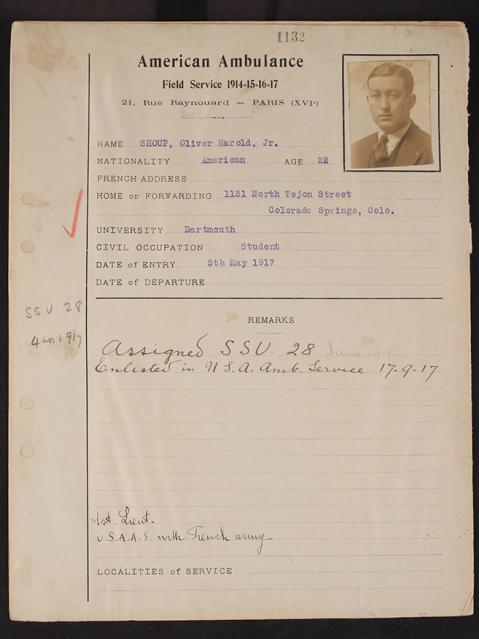 1132
American Ambulance
Field Service 1914-15-16-17
21, Rue Raynouard — PARIS (XVIe)
NAME SHOUP, Oliver Harold, Jr.
NATIONALITY American AGE 22
FRENCH ADDRESS
HOME or FORWARDING 1131 North Tejon Street
Colorado Springs, Colo.
UNIVERSITY Dartmouth
CIVIL OCCUPATION Student
DATE of ENTRY 5th May 1917
DATE of DEPARTURE
SSU 28
1917
REMARKS
Assigned SSU. 28 June
Enlisted in U.S.A. Amb. Service 17-9-17
1st Lieut.
U.S.A.A.S with French army
LOCALITIES of SERVICE